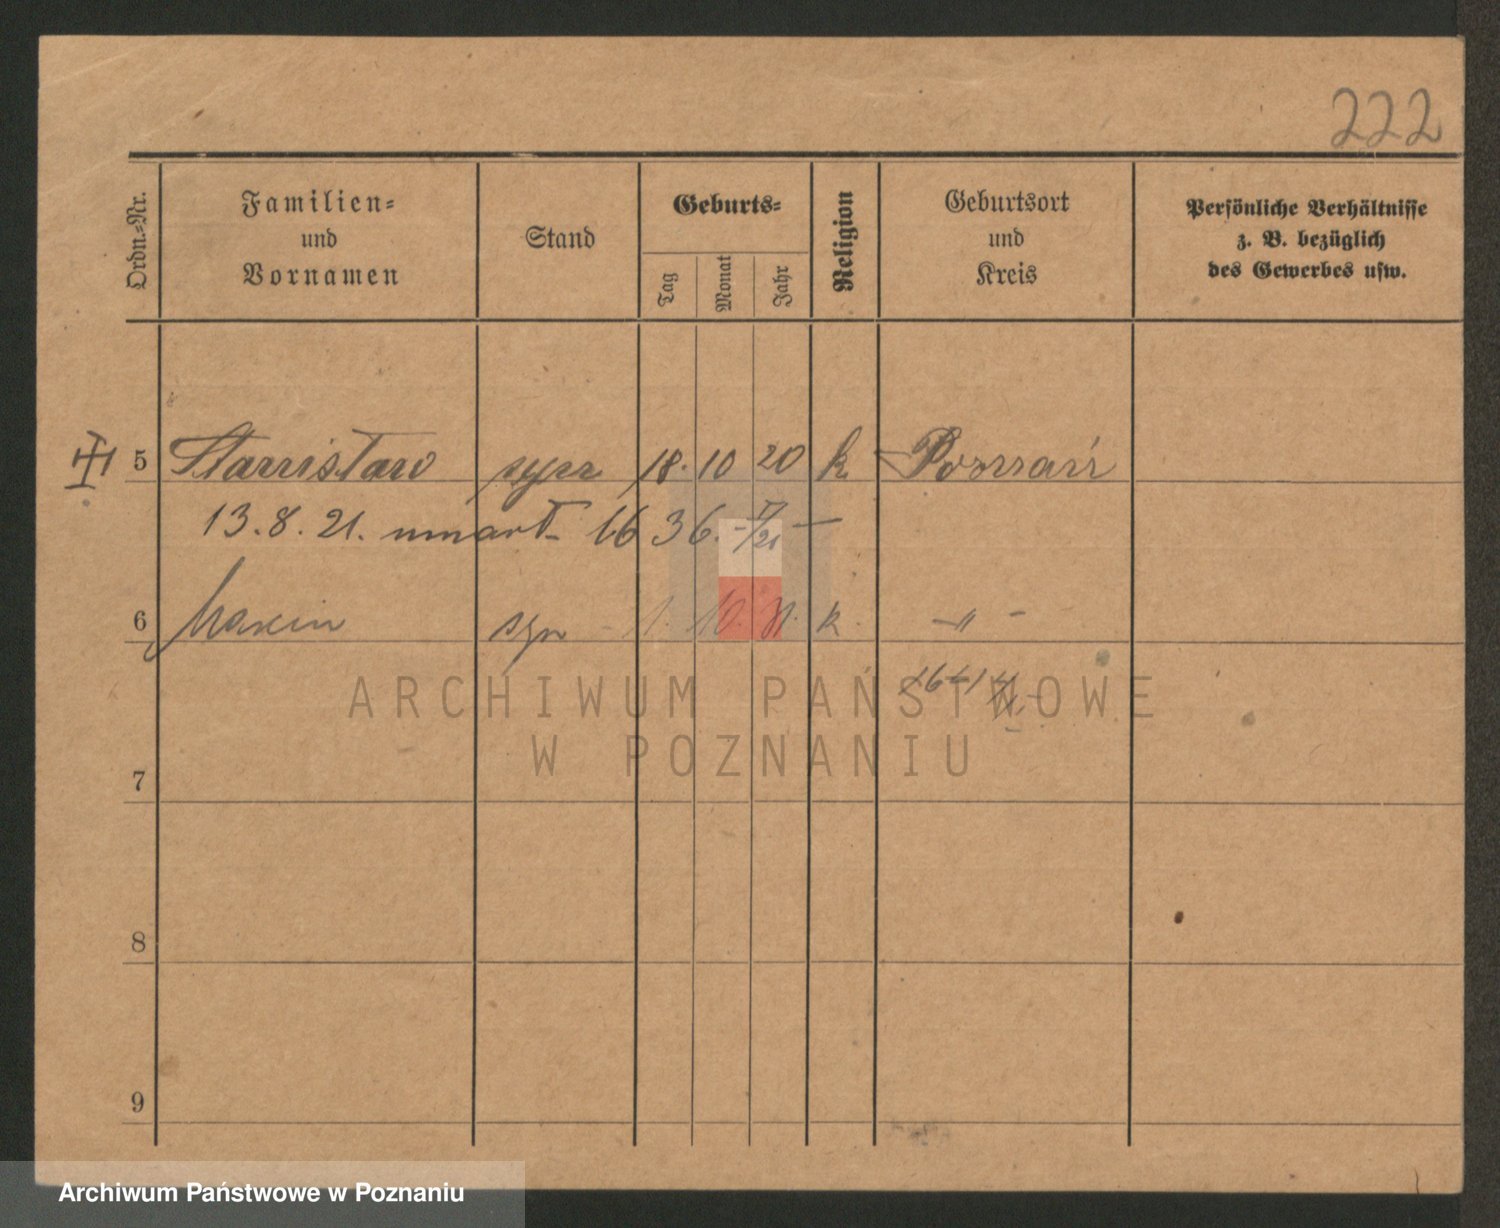 222
Ordn.-Nr.
Familien-
und
Vornamen
Stand
Geburts-
Tag
Monat
Jahr
Religion
Geburtsort
und
Kreis
Persönliche Verhältnisse
z. B. bezüglich
des Gewerbes usw.
5 Stanisław syn 18. 10 20 k Poznań
13. 8. 21. umarł
6 syn 1. 10. k
7
8
9
ARCHIWUM PAŃSTWOWE
W POZNANIU
Archiwum Państwowe w Poznaniu